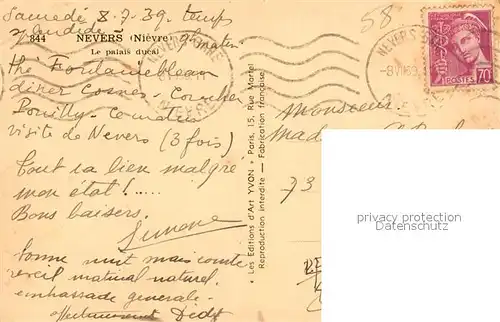 Samedi 8.7.39. temps
splendide
844 NEVERS (Nièvre)
Le palais ducal
thé Fontainebleau
dîner Cosnes - Coucher
Pouilly -
visite de Nevers (3 fois)
Tout va bien malgré
mon état !.....
Bons baisers.
Simone
bonne nuit mais courte
réveil matinal naturel.
embrassade generale.
• Les Editions d'Art YVON • Paris, 15, Rue Martel
Reproduction interdite - Fabrication française
58
NEVERS
POSTES 70
Monsieur
73
privacy protection
Datenschutz